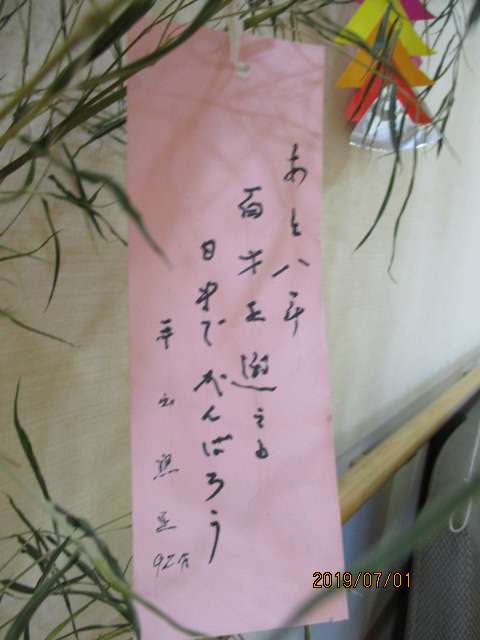 あと八年
百才を迎える
日までがんばろう
92才
2019/07/01